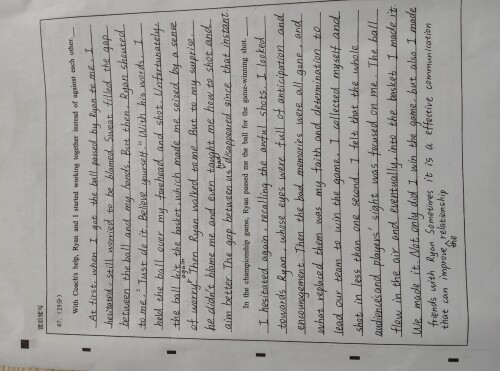 读后续写
67. (25分)
With Coach's help, Ryan and I started working together instead of against each other.
At first, when I got the ball passed by Ryan to me, I
hesitated, still worried to be blamed. Sweat filled the gap
between the ball and my hands. But then, Ryan shouted
to me, "Just do it. Believe yourself." With his words, I
held the ball over my forehead and shot. Unfortunately,
the ball hit the basket, which made me seized by a sense
of worry again. Then Ryan walked to me. But to my surprise,
he didn't blame me and even taught me how to shot and
aim better. The gap between us had disappeared since that instant.
In the championship game, Ryan passed me the ball for the game-winning shot.
I hesitated again, recalling the awful shots. I looked
towards Ryan, whose eyes were full of anticipation and
encouragement. Then the bad memories were all gone, and
what replaced them was my faith and determination to
lead our team to win the game. I collected myself and
shot in less than one second. I felt that the whole
audiences and players' sight was focused on me. The ball
flow in the air and eventually, into the basket. I made it.
We made it. Not only did I win the game, but also I made
friends with Ryan. Sometimes it is a effective communication
that can improve the relationship